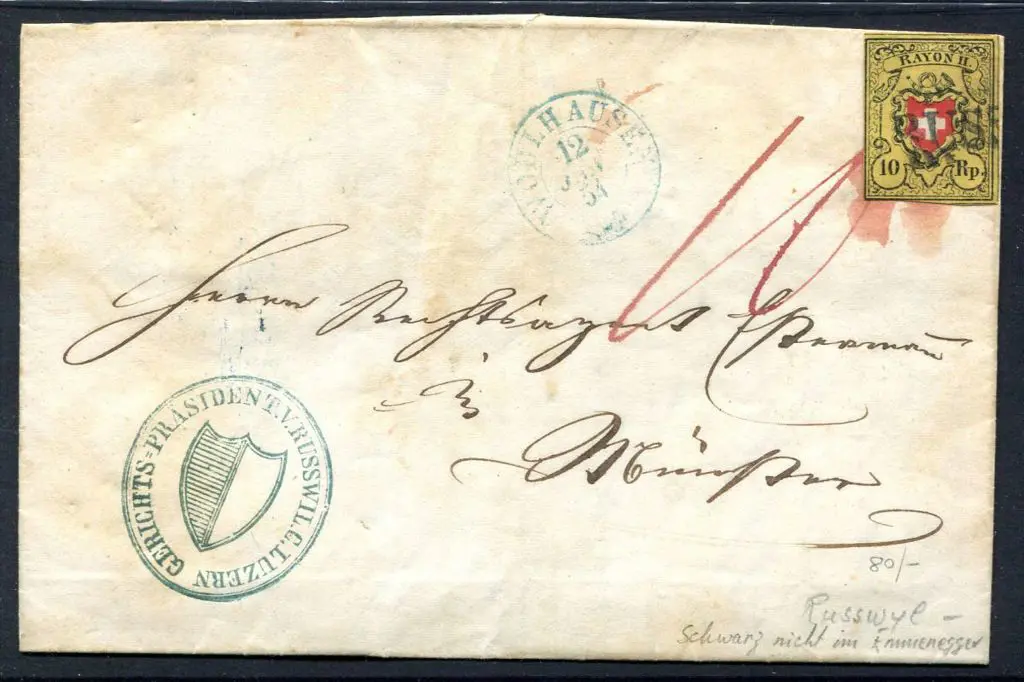 RAYON II.
10 Rp.
WOHLHAUSEN
12
54
Herrn Rechtsagent Esterman
in
Münster
GERICHTS=PRÄSIDENT.V.RUSSWIL.C.LUZERN
80/-
Russwyl –
Schwarz nicht im Emmenegger